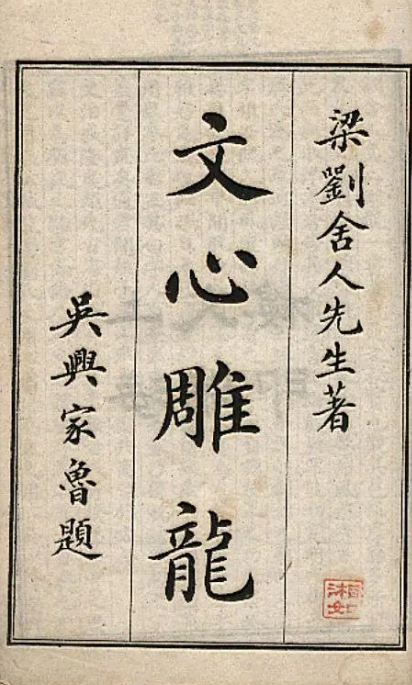 梁劉舍人先生著
文心雕龍
吳興家魯題